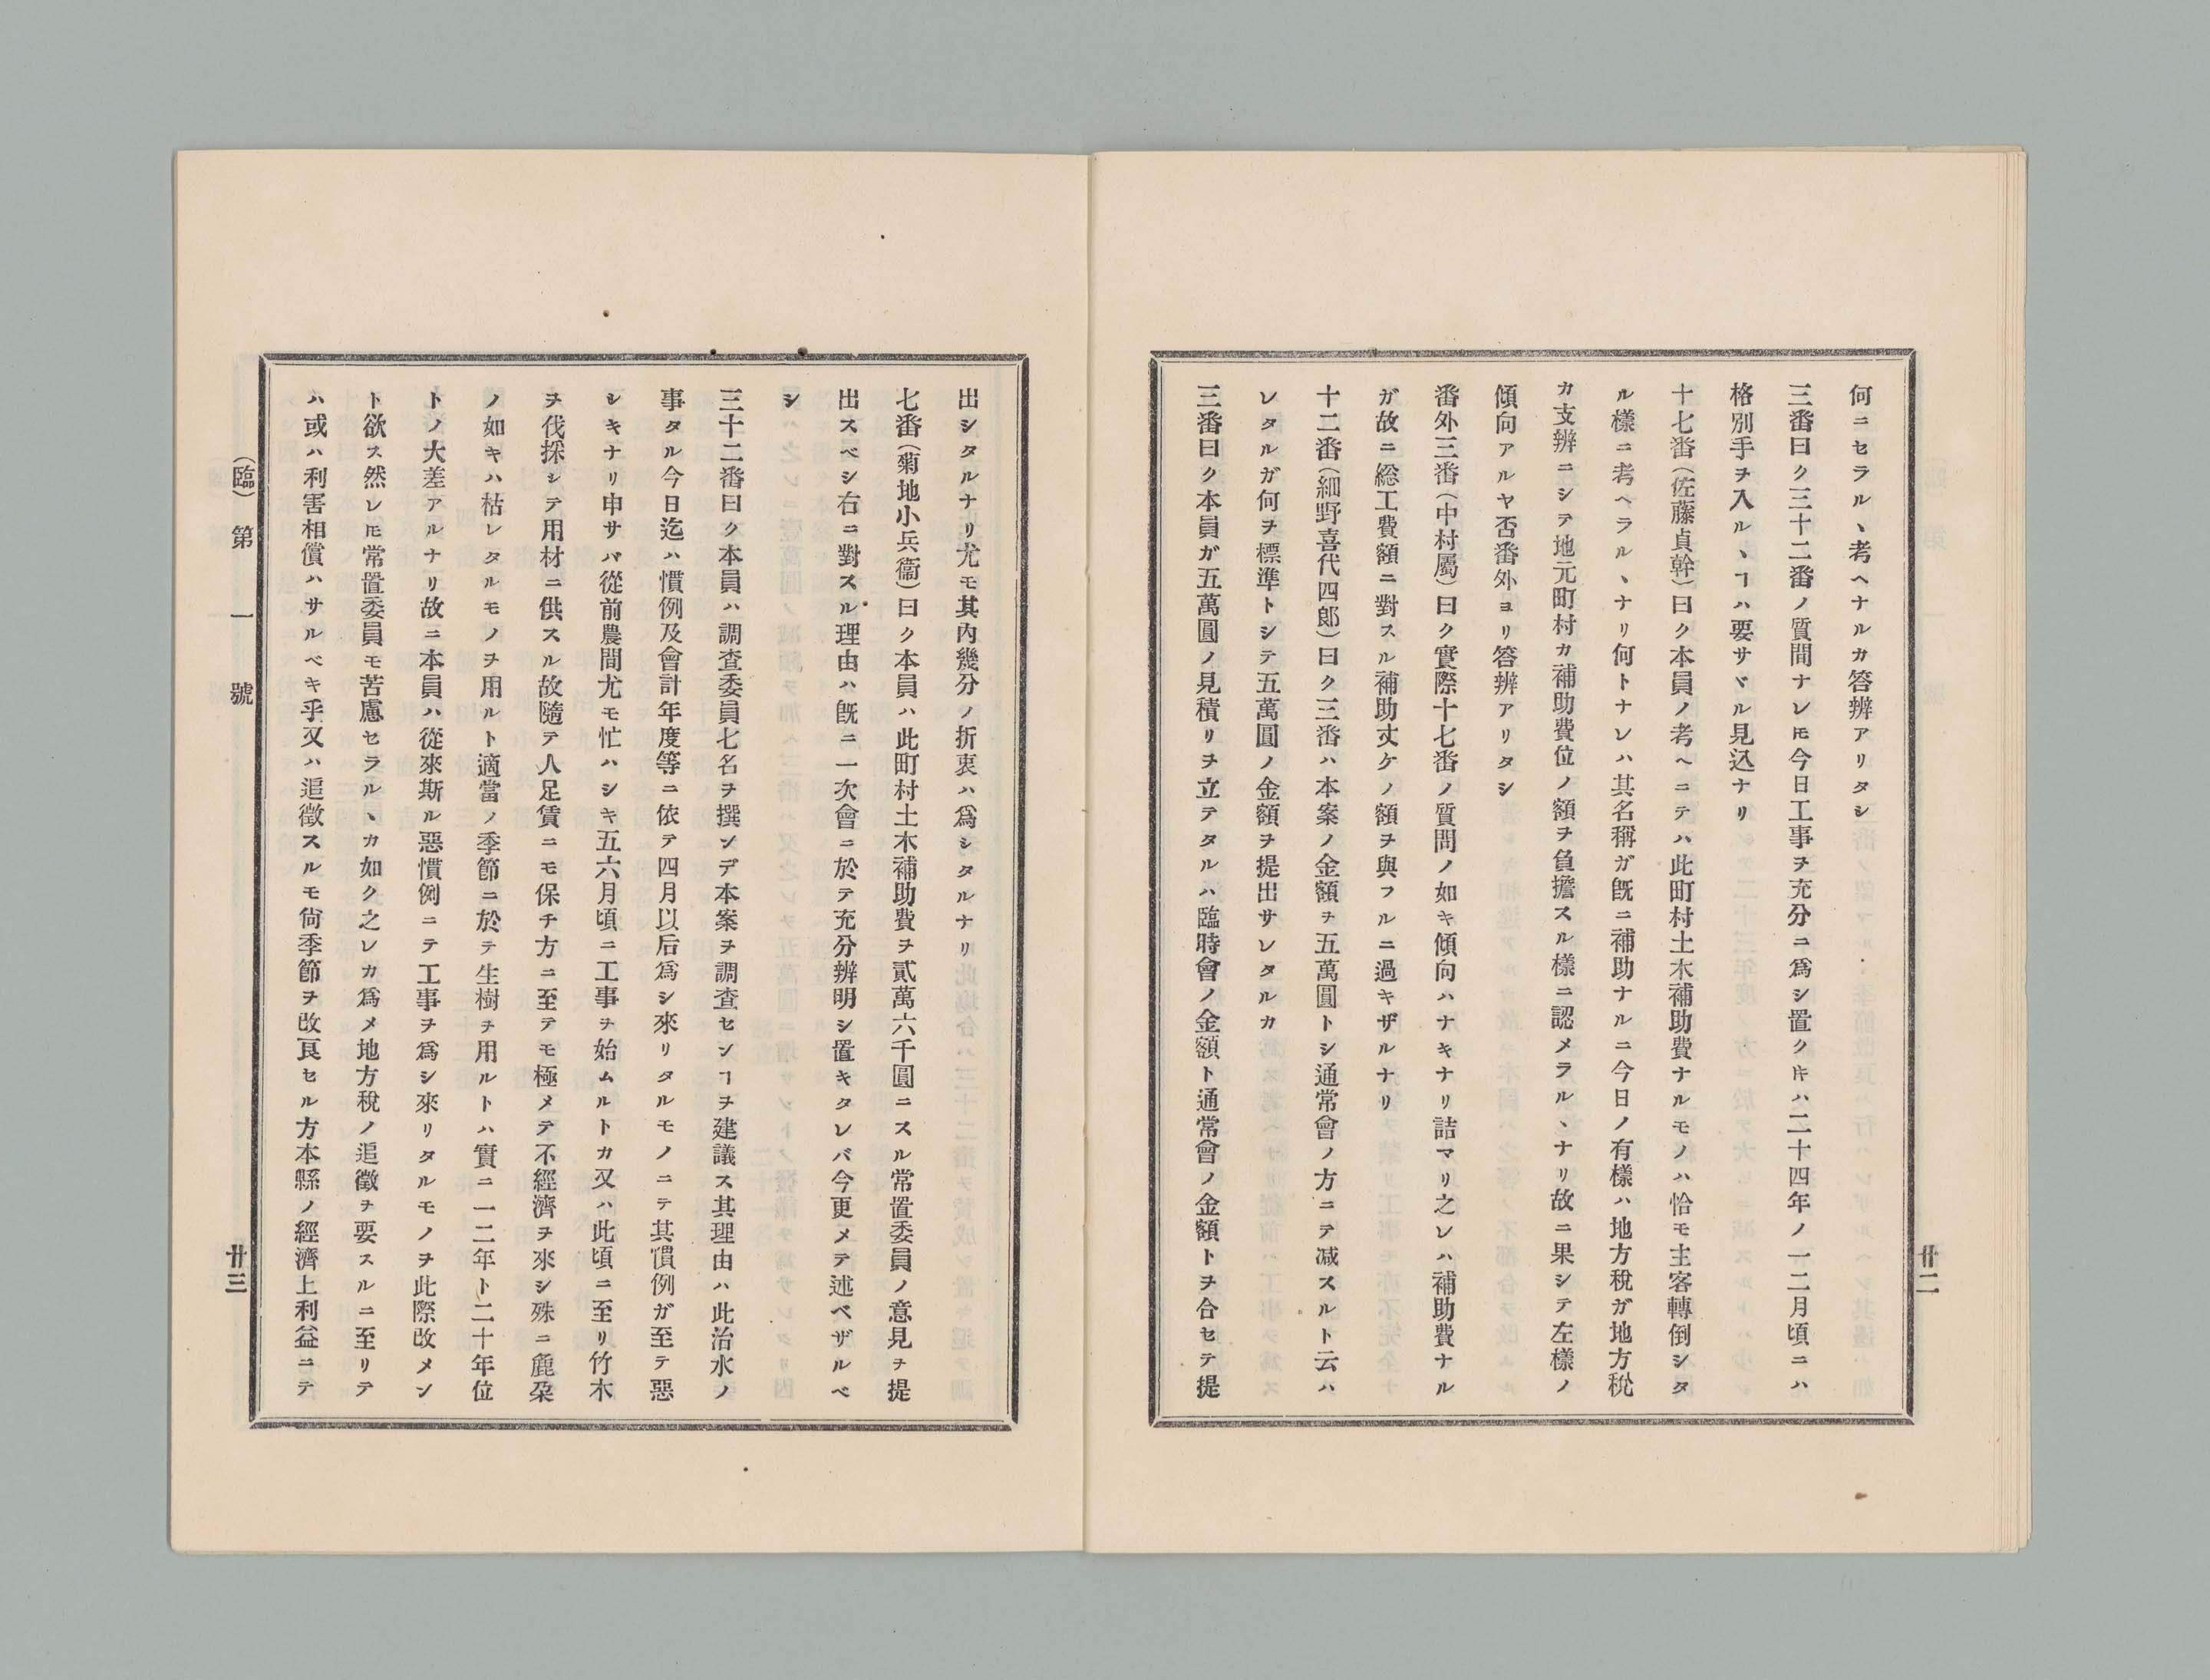 何ニセラルヽ考ヘナルカ答辨アリタシ
三番曰ク三十二番ノ質問ナレ𪜈今日工事ヲ充分ニ爲シ置クキハ二十四年ノ一二月頃ニハ
格別手ヲ入ルヽヿハ要サヾル見込ナリ
十七番（佐藤貞幹）曰ク本員ノ考ヘニテハ此町村土木補助費ナルモノハ恰モ主客轉倒シタ
ル樣ニ考ヘラルヽナリ何トナレハ其名稱ガ既ニ補助ナルニ今日ノ有樣ハ地方稅ガ地方稅
カ支辨ニシテ地元町村カ補助費位ノ額ヲ負擔スル樣ニ認メラルヽナリ故ニ果シテ左樣ノ
傾向アルヤ否番外ヨリ答辨アリタシ
番外三番（中村屬）曰ク實際十七番ノ質問ノ如キ傾向ハナキナリ詰マリ之レハ補助費ナル
ガ故ニ総工費額ニ對スル補助丈ケノ額ヲ與フルニ過キザルナリ
十二番（細野喜代四郎）曰ク三番ハ本案ノ金額ヲ五萬圓トシ通常會ノ方ニテ减スルト云ハ
レタルガ何ヲ標準トシテ五萬圓ノ金額ヲ提出サレタルカ
三番曰ク本員ガ五萬圓ノ見積リヲ立テタルハ臨時會ノ金額ト通常會ノ金額トヲ合セテ提
廿二
出シタルナリ尤モ其內幾分ノ折衷ハ爲シタルナリ
七番（菊地小兵衞）曰ク本員ハ此町村土木補助費ヲ貳萬六千圓ニスル常置委員ノ意見ヲ提
出スベシ右ニ對スル理由ハ既ニ一次會ニ於テ充分辨明シ置キタレバ今更メテ述ベザルベ
シ
三十二番曰ク本員ハ調査委員七名ヲ撰ンデ本案ヲ調査センヿヲ建議ス其理由ハ此治水ノ
事タル今日迄ハ慣例及會計年度等ニ依テ四月以后爲シ來リタルモノニテ其慣例ガ至テ惡
シキナリ申サバ從前農間尤モ忙ハシキ五六月頃ニ工事ヲ始ムルトカ又ハ此頃ニ至リ竹木
ヲ伐採シテ用材ニ供スル故隨テ人足賃ニモ保チ方ニ至テモ極メテ不經濟ヲ來シ殊ニ麁朶
ノ如キハ枯レタルモノヲ用ルト適當ノ季節ニ於テ生樹ヲ用ルトハ實ニ一二年ト二十年位
トノ大差アルナリ故ニ本員ハ從來斯ル惡慣例ニテ工事ヲ爲シ來リタルモノヲ此際改メン
ト欲ス然レ𪜈常置委員モ苦慮セラルヽカ如ク之レカ爲メ地方稅ノ追徵ヲ要スルニ至リテ
ハ或ハ利害相償ハサルベキ乎又ハ追徵スルモ尙季節ヲ改良セル方本縣ノ經濟上利益ニテ
（臨）第一號
廿三